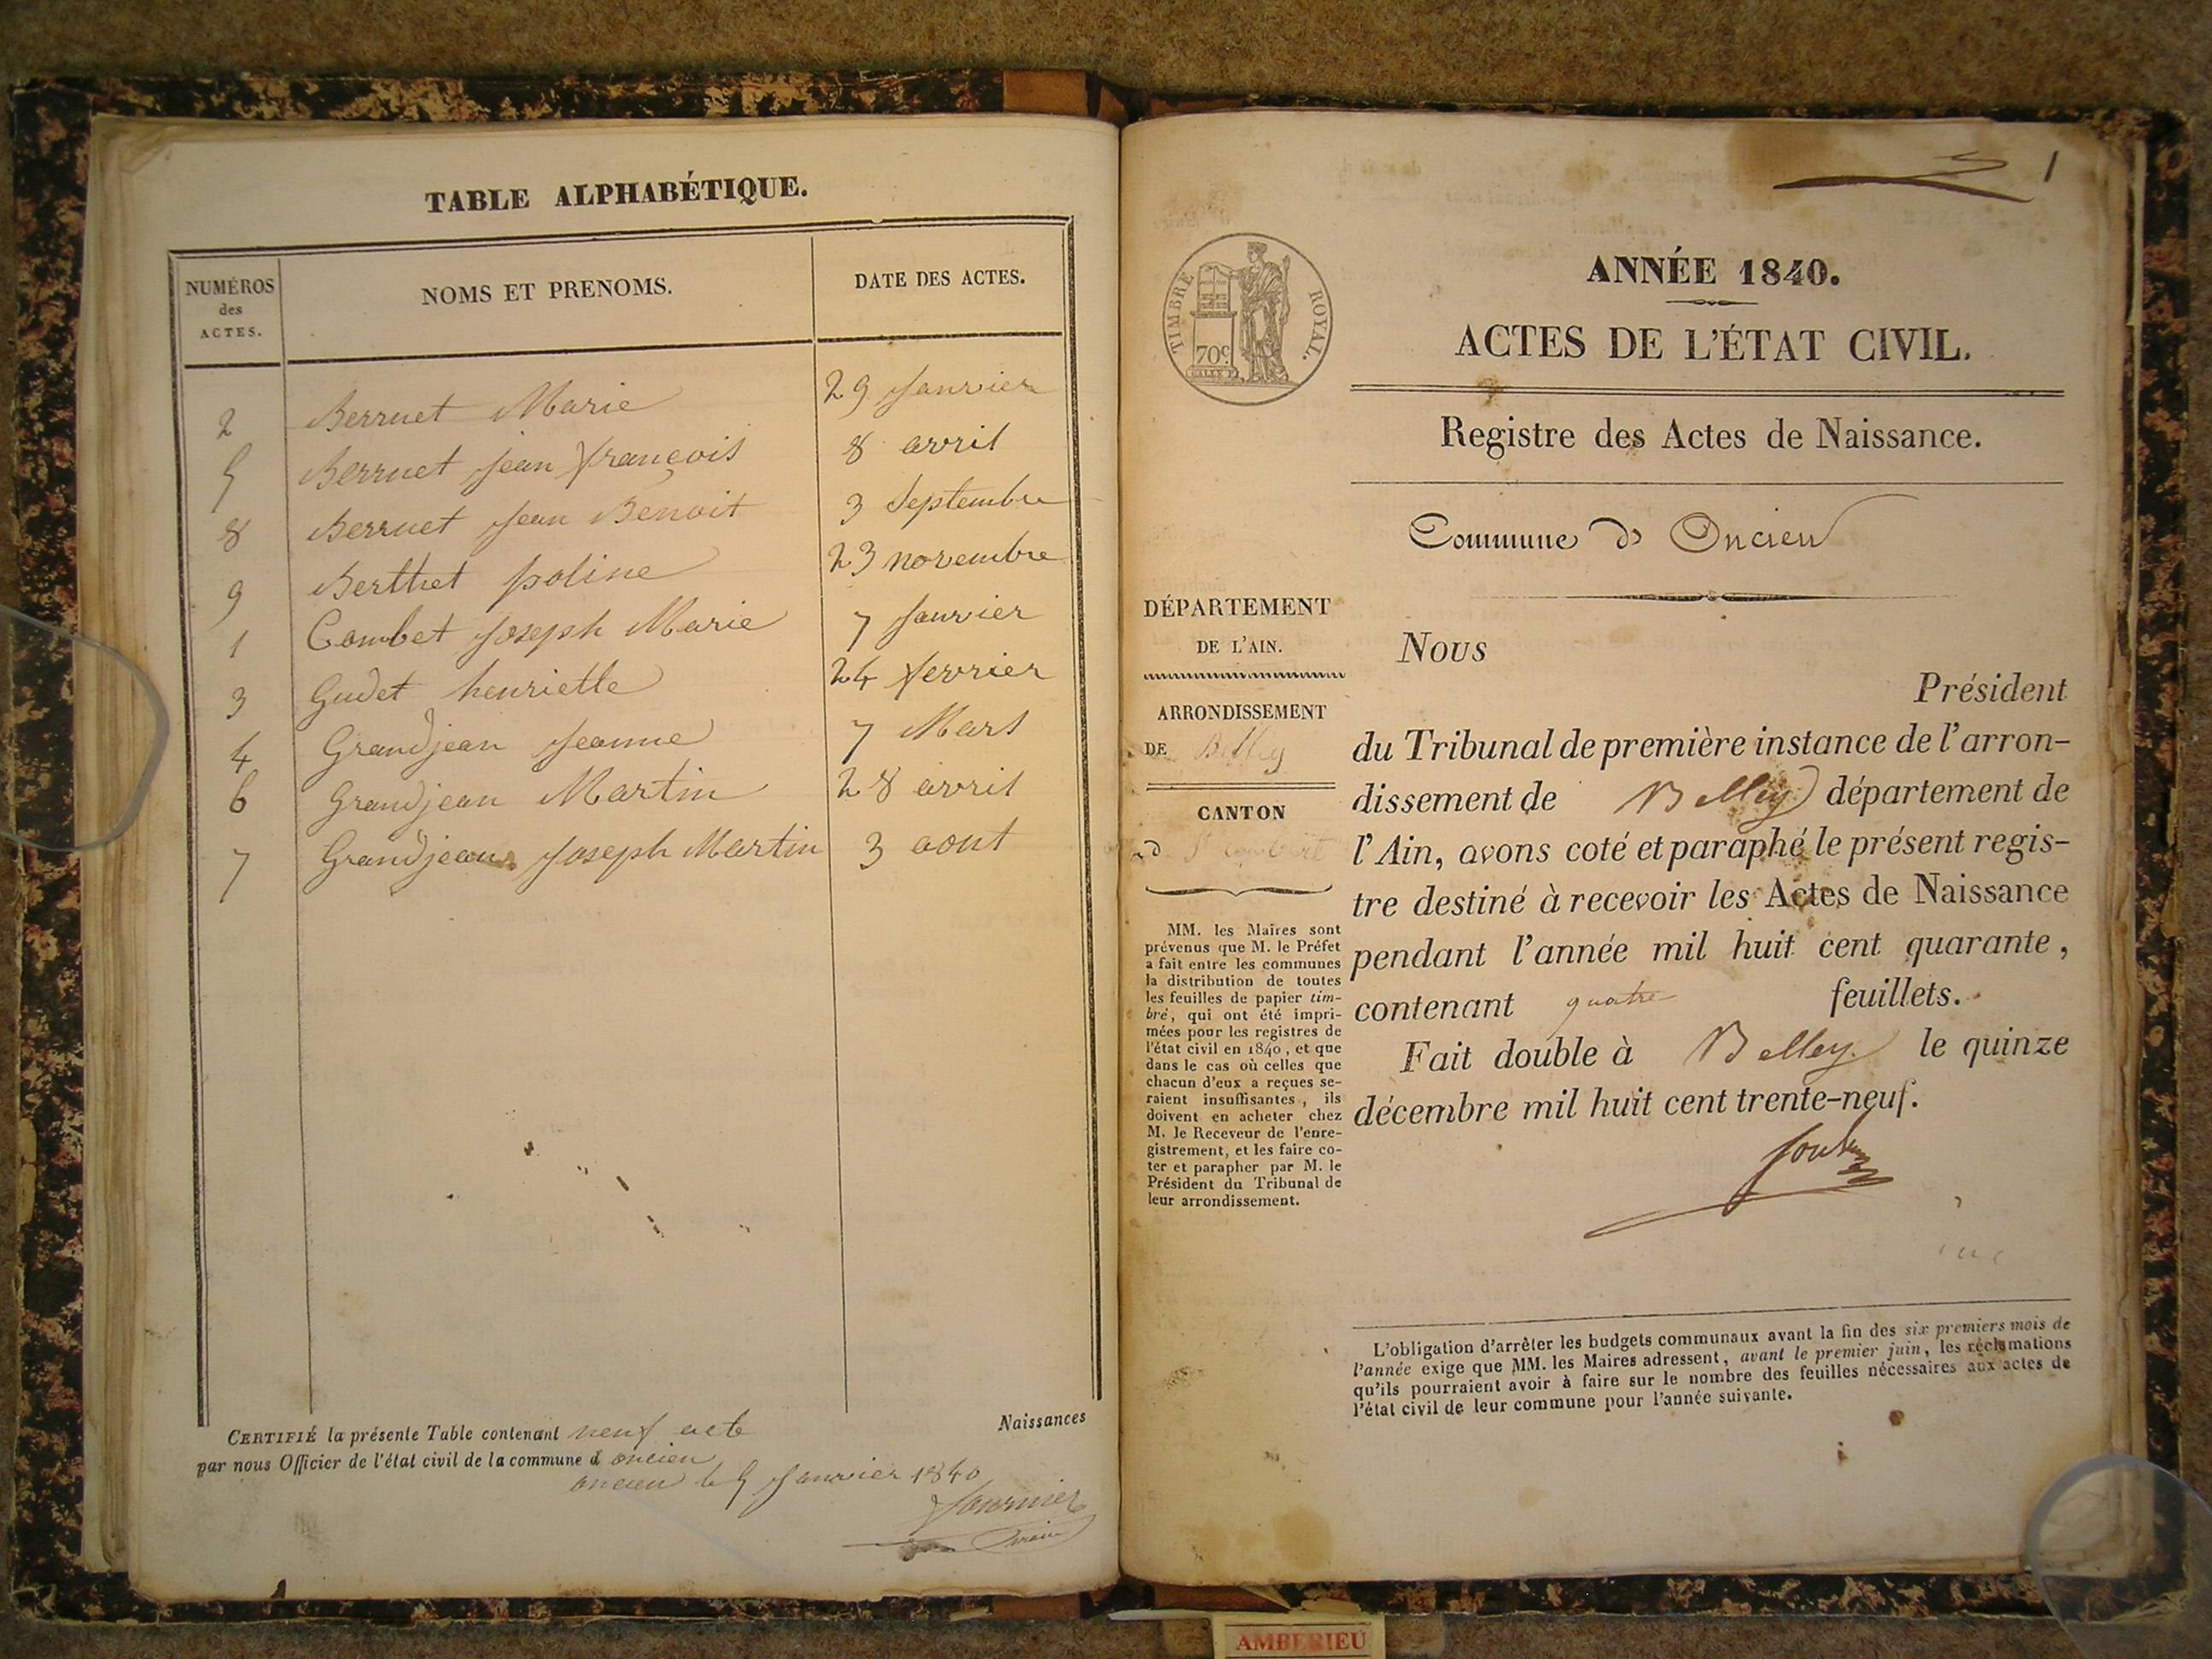 TABLE ALPHABÉTIQUE.
NUMÉROS des ACTES.
NOMS ET PRENOMS.
DATE DES ACTES.
2 Berruet Marie 29 Janvier
5 Berruet jean françois 8 avril
8 Berruet Jean Benoit 3 Septembre
9 Berthet poline 23 novembre
1 Combet Joseph Marie 7 Janvier
3 Gudet henriette 24 fevrier
4 Grandjean Jeanne 7 Mars
6 Grandjean Martin 28 avril
7 Grandjean Joseph Martin 3 aout
CERTIFIÉ la présente Table contenant neuf acte Naissances
par nous Officier de l'état civil de la commune d oncieu
oncieu le 5 Janvier 1840
fournier
1
TIMBRE ROYAL.
70c
ANNÉE 1840.
ACTES DE L'ÉTAT CIVIL.
Registre des Actes de Naissance.
Commune d' Oncieu
DÉPARTEMENT
DE L'AIN.
ARRONDISSEMENT
DE Belley
CANTON
MM. les Maires sont
prévenus que M. le Préfet
a fait entre les communes
la distribution de toutes
les feuilles de papier tim-
bré, qui ont été impri-
mées pour les registres de
l'état civil en 1840, et que
dans le cas où celles que
chacun d'eux a reçues se-
raient insuffisantes, ils
doivent en acheter chez
M. le Receveur de l'enre-
gistrement, et les faire co-
ter et parapher par M. le
Président du Tribunal de
leur arrondissement.
Nous
Président
du Tribunal de première instance de l'arron-
dissement de Belley département de
l'Ain, avons coté et paraphé le présent regis-
tre destiné à recevoir les Actes de Naissance
pendant l'année mil huit cent quarante,
contenant quatre feuillets.
Fait double à Belley. le quinze
décembre mil huit cent trente-neuf.
L'obligation d'arrêter les budgets communaux avant la fin des six premiers mois de
l'année exige que MM. les Maires adressent, avant le premier juin, les réclamations
qu'ils pourraient avoir à faire sur le nombre des feuilles nécessaires aux actes de
l'état civil de leur commune pour l'année suivante.
AMBERIEU